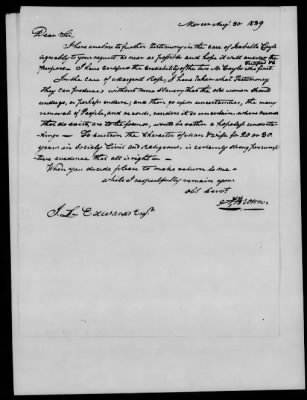 Mercer Augt 30 1839
Dear Sir,
I have enclosed further testimony in the case of Isabella Coyle
agreeably to your request as near as possible and hope it will answer the
purpose - I have certified the credibility of the two
In the case of Margaret Ross, I have taken what Testimony
they can produce without more slavery than the old woman should
undergo, or perhaps endure; and then so upon uncertainties, the many
removal of People, and records, renders it so uncertain where records
that do exist, are to be found, would be rather a hopeless undertaking
- To sustain the Character of Man & Wife for 20 or 30
years in Society Civil and religious, is certainly strong presumptive
evidence that all is right -
When you decide please to make return to me -
while I respectfully remain your
obt Servt
Brown
J. L. Edwards Esqr